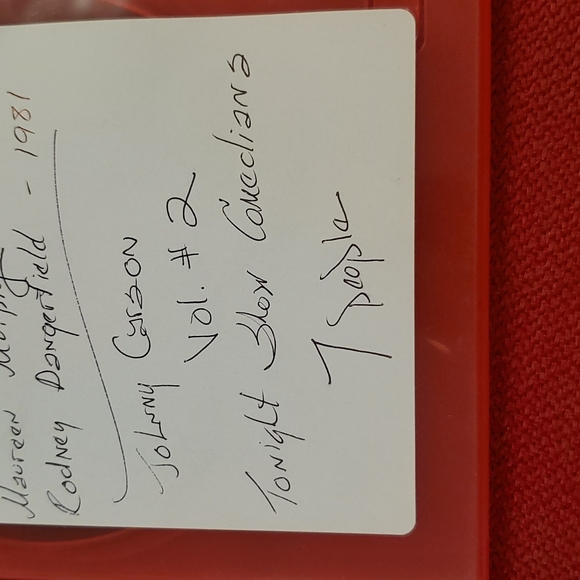 Maureen Murphy
Rodney Dangerfield - 1981
Johnny Carson
Vol. # 2
Tonight Show Comedians
7 people